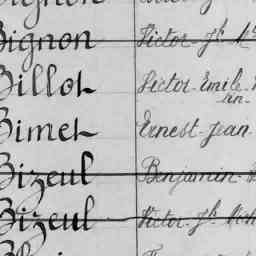 Bignon Victor Jh
Billot Victor Emile
Bimet Ernest Jean
Bizeul Benjamin
Bizeul Victor Jh